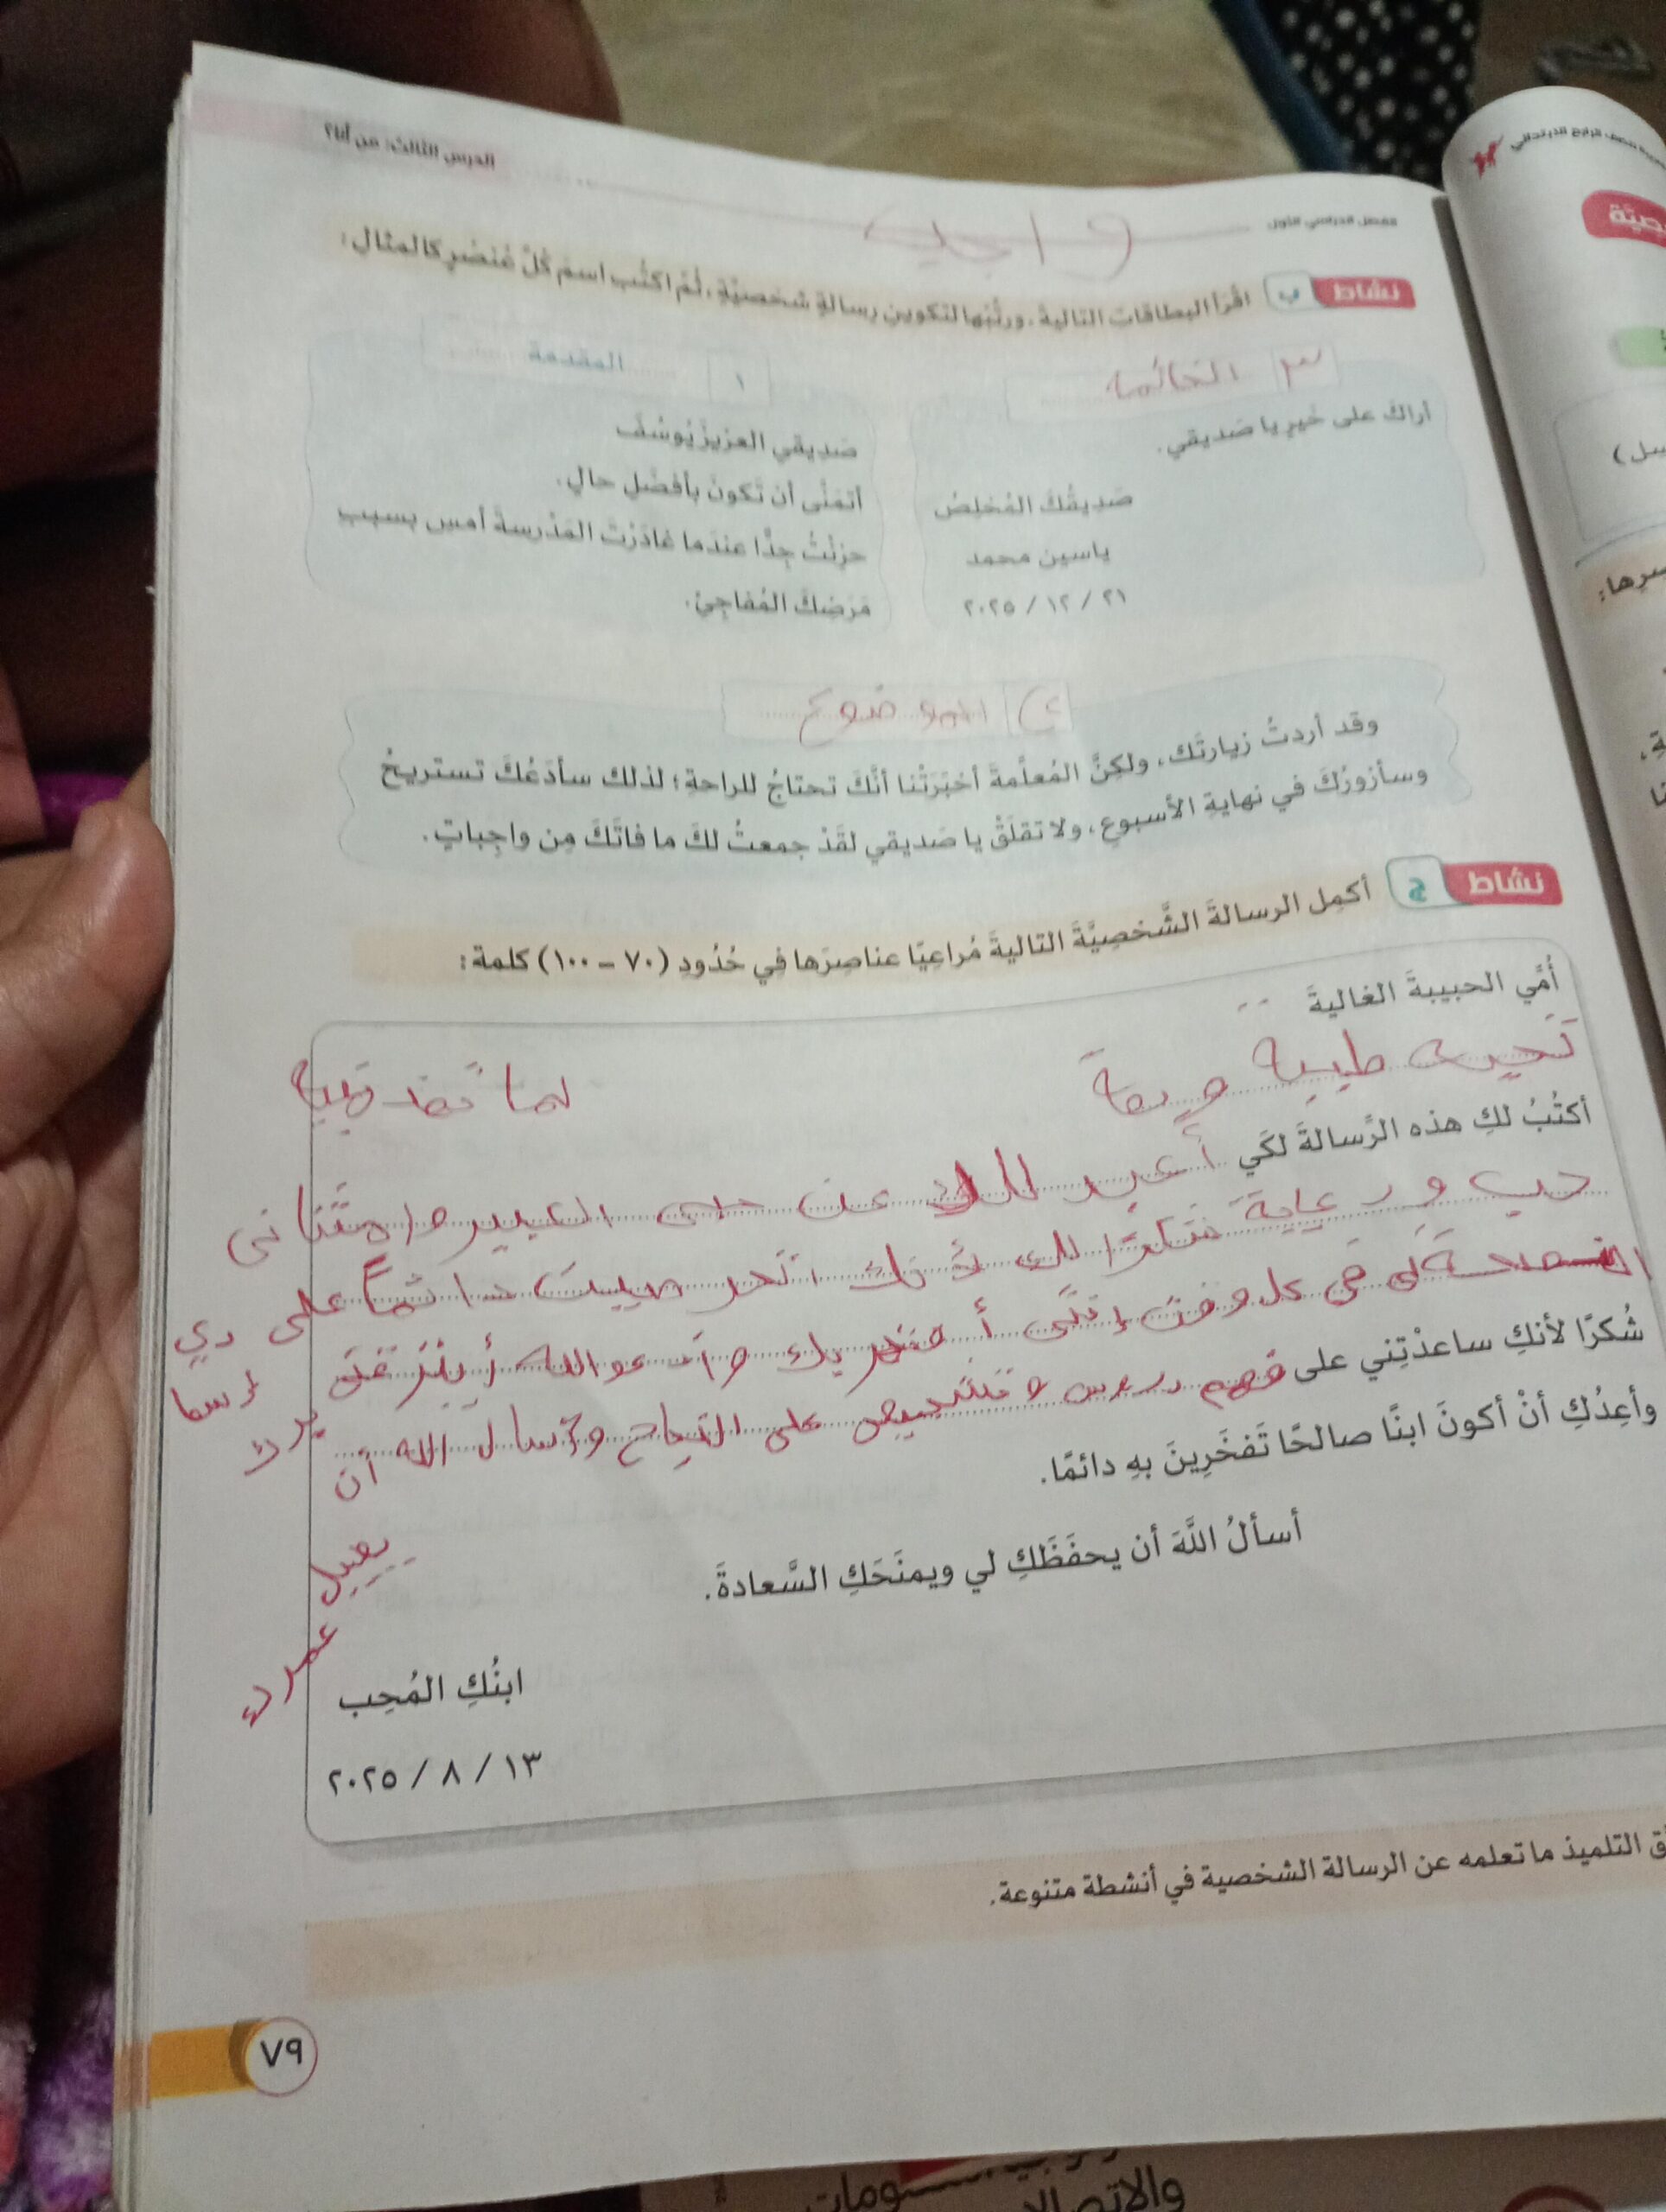 الدرس الثالث: من أنا؟
الفصل الدراسي الأول
واجب
نشاط ب اقرأ البطاقات التالية، ورتِّبها لتكوين رسالةٍ شخصيَّةٍ، ثُمَّ اكتُب اسمَ كُلِّ عُنصُرٍ كالمثال:
٣ الخاتمة
أراكَ على خَيرٍ يا صَديقي.
صَديقُكَ المُخلِصُ
ياسين محمد
٢١ / ١٢ / ٢٠٢٥
١ المقدمة
صَديقي العزيزَ يُوسُفَ
أتمَنَّى أن تَكونَ بأفضَلِ حالٍ.
حزِنْتُ جِدًّا عندَما غادَرْتَ المَدْرسةَ أمسِ بسببِ
مَرَضِكَ المُفاجِئِ.
٢ الموضوع
وقد أردتُ زيارتَك، ولكِنَّ المُعلِّمةَ أخبَرَتْنا أنَّكَ تحتاجُ للراحةِ؛ لذلك سأدَعُكَ تستريحُ
وسأزورُكَ في نهايةِ الأسبوعِ، ولا تقلَقْ يا صَديقي لقَدْ جمعتُ لكَ ما فاتَكَ مِن واجِباتٍ.
نشاط ج أكمِل الرسالةَ الشَّخصِيَّةَ التاليةَ مُراعِيًا عناصِرَها في حُدُودِ (٧٠ – ١٠٠) كلمة:
أُمِّي الحبيبةَ الغاليةَ
تحية طيبة وبعد
لما تقدميه
أكتُبُ لكِ هذه الرِّسالةَ لكَي أعبر لك عن حبى الكبير وامتنانى
حب ورعاية شكرًا لك لأنك تحرصين دائمًا على
لى فى كل وقت إننى أفتخر بك وأدعو الله
شُكرًا لأنكِ ساعدْتِني على فهم دروس وتشجيعى على النجاح وأسال الله أن
يطيل
عمرك
وأعِدُكِ أنْ أكونَ ابنًا صالحًا تَفخَرِينَ بهِ دائمًا.
أسألُ اللَّهَ أن يحفَظَكِ لي ويمنَحَكِ السَّعادةَ.
ابنُكِ المُحِب
١٣ / ٨ / ٢٠٢٥
التلميذ ما تعلمه عن الرسالة الشخصية في أنشطة متنوعة.
٧٩